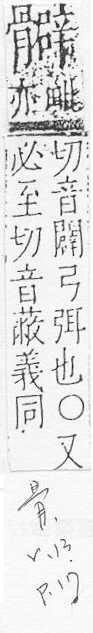 毗
亦
切音闢弓弭也〇又
必至切音蔽義同
骨.
V.13
P.17